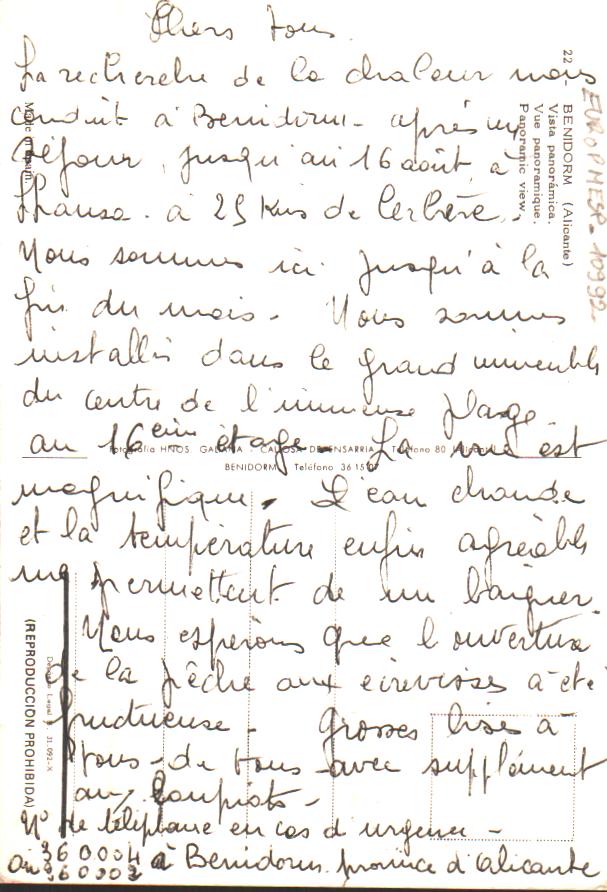 Chers tous
La recherche de la chaleur nous
conduit à Benidorm - après un
séjour, jusqu'au 16 août, à
Lhansa - à 25 Kms de Cerbère.
Nous sommes ici jusqu'à la
fin du mois - Nous sommes
installés dans le grand immeuble
du centre de l'immense plage
au 16ème étage. La vue est
magnifique. L'eau chaude
et la température enfin agréable
me permettent de me baigner.
Nous espérons que l'ouverture
de la pêche aux écrevisses a été
fructueuse - Grosses bises à
tous - de tous - avec supplément
aux Loupiots -
N° de téléphone en cas d'urgence -
ou 360004 à Benidorm province d'alicante
360002
22
BENIDORM (Alicante)
Vista panorámica.
Vue panoramique.
Panoramic view.
EUROPHESP-10992
Made in Spain.
Fotografía HNOS. GALIANA - CALLOSA DE ENSARRIA - Teléfono 80 (Alicante)
BENIDORM - Teléfono 36 15 07
Depósito Legal B. 31.092-X
(REPRODUCCION PROHIBIDA)